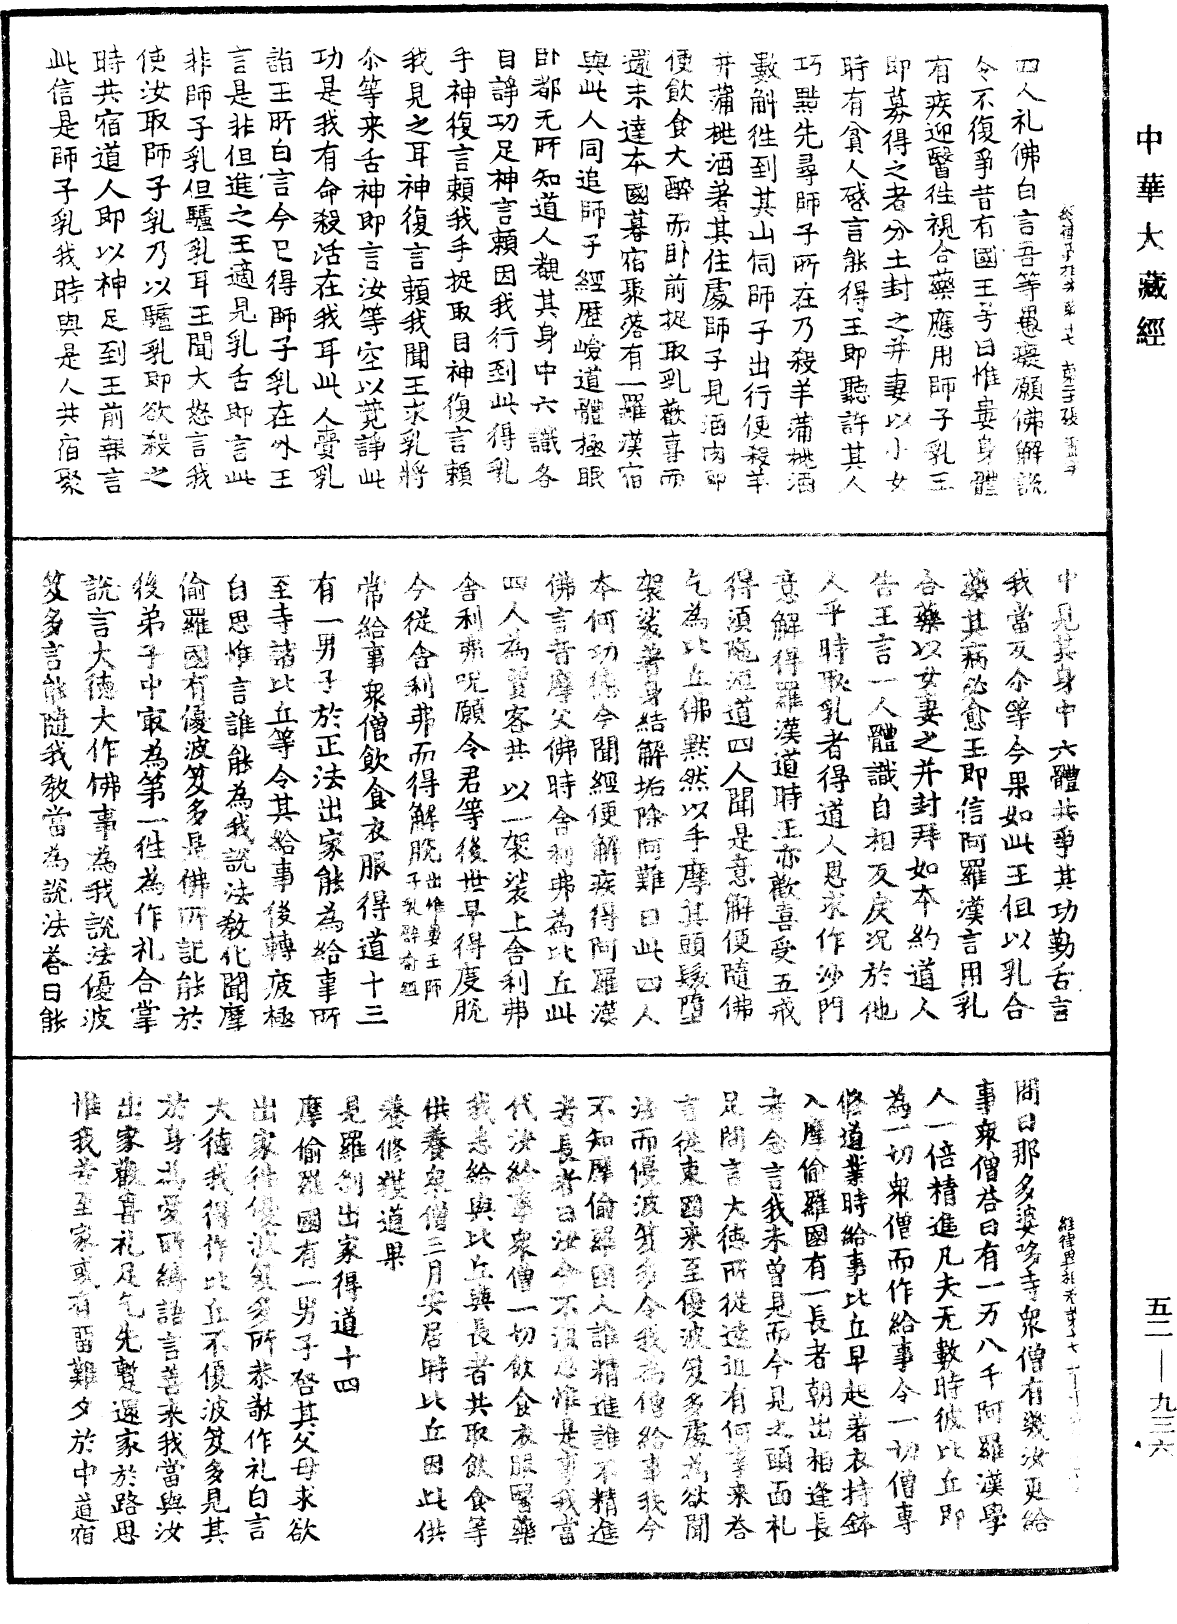 中華大藏經
四人礼佛白言吾等愚癡願佛解說
令不復爭昔有國王号曰惟婁身體
有疾迎醫往視合藥應用師子乳王
即募得之者分土封之并妻以小女
時有貧人啓言能得王即聽許其人
巧黠先尋師子所在乃殺羊蒲桃酒
數斛往到其山伺師子出行便殺羊
并蒲桃酒著其住處師子見酒肉即
便飲食大醉而卧前捉取乳歡喜而
還未達本國暮宿聚落有一羅漢宿
與此人同追師子經歷嶮道體極眠
卧都无所知道人觀其身中六識各
自諍功足神言賴因我行到此得乳
手神復言賴我手捉取目神復言賴
我見之耳神復言賴我聞王求乳將
尒等来舌神即言汝等空以竞諍此
功是我有命殺活在我耳此人賣乳
詣王所白言今已得師子乳在外王
言是非但進之王適見乳舌即言此
非師子乳但驢乳耳王聞大怒言我
使汝取師子乳乃以驢乳即欲殺之
時共宿道人即以神足到王前報言
此信是師子乳我時與是人共宿聚
中見其身中六體共爭其功勤舌言
我當反尒等今果如此王但以乳合
藥其病必愈王即信阿羅漢言用乳
合藥以女妻之并封拜如本約道人
告王言一人體識自相反戾況於他
人乎時取乳者得道人恩求作沙門
意解得羅漢道時王亦歡喜受五戒
得須陁洹道四人聞是意解便隨佛
乞為比丘佛黙然以手摩其頭髮墮
架裟著身結解垢除阿難曰此四人
本何功德今聞經便解疾得阿羅漢
佛言昔摩父佛時舍利弗為比丘此
四人為賈客共以一架裟上舍利弗
舍利弗呪願令君等後世早得度脫
今從舍利弗而得解脫出惟婁王師子乳辟喻經
常給事衆僧飲食衣服得道十三
有一男子於正法出家能為給事所
至寺諸比丘等令其給事後轉疲極
自思惟言誰能為我說法教化聞摩
偷羅國有優波笈多是佛所記能於
後弟子中㝡為第一往為作礼合掌
說言大德大作佛事為我說法優波
笈多言能隨我教當為說法荅曰能
問曰那多婆哆寺衆僧有幾汝更給
事衆僧荅曰有一万八千阿羅漢學
人一倍精進凡夫无數時彼比丘即
為一切衆僧而作給事令一切僧專
修道業時給事比丘早起著衣持鉢
入摩偷羅國有一長者朝出相逢長
者念言我未曾見而今見之頭面礼
足問言大德所從遠近有何事来荅
言從東國来至優波笈多處為欲聞
法而優波笈多令我為僧給事我今
不知摩偷羅國人誰精進誰不精進
者長者曰汝今不須思惟是事我當
代汝給事衆僧一切飲食衣服醫藥
我悉給與比丘與長者共取飲食等
供養衆僧三月安居時比丘因此供
養修獲道果
見羅刹出家得道十四
摩偷羅國有一男子啓其父母求欲
出家往優波笈多所恭敬作礼白言
大德我得作比丘不優波笈多見其
於身為愛所縛語言善来我當與汝
出家歡喜礼足乞先蹔還家於路思
惟我若至家或有留難夕於中道宿
五二—九三六